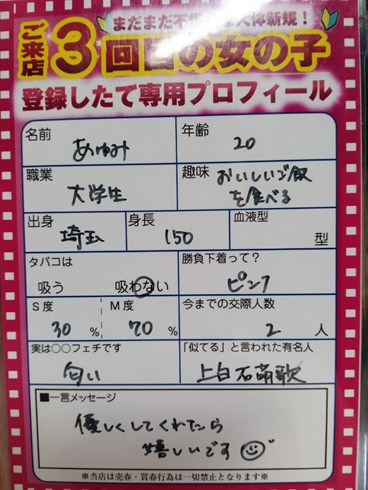 ご来店
3回目の女の子
登録したて専用プロフィール
名前 あゆみ 年齢 20
職業 大学生 趣味 おいしいご飯
を食べる
出身 埼玉 身長 150 血液型 型
タバコは 吸う 吸わない 勝負下着って? ピンク
S度 30% M度 70% 今までの交際人数 2人
実は○○フェチです 匂い 「似てる」と言われた有名人 上白石萌歌
■一言メッセージ
優しくしてくれたら
嬉しいです
※当店は売春・買春行為は一切禁止となります※